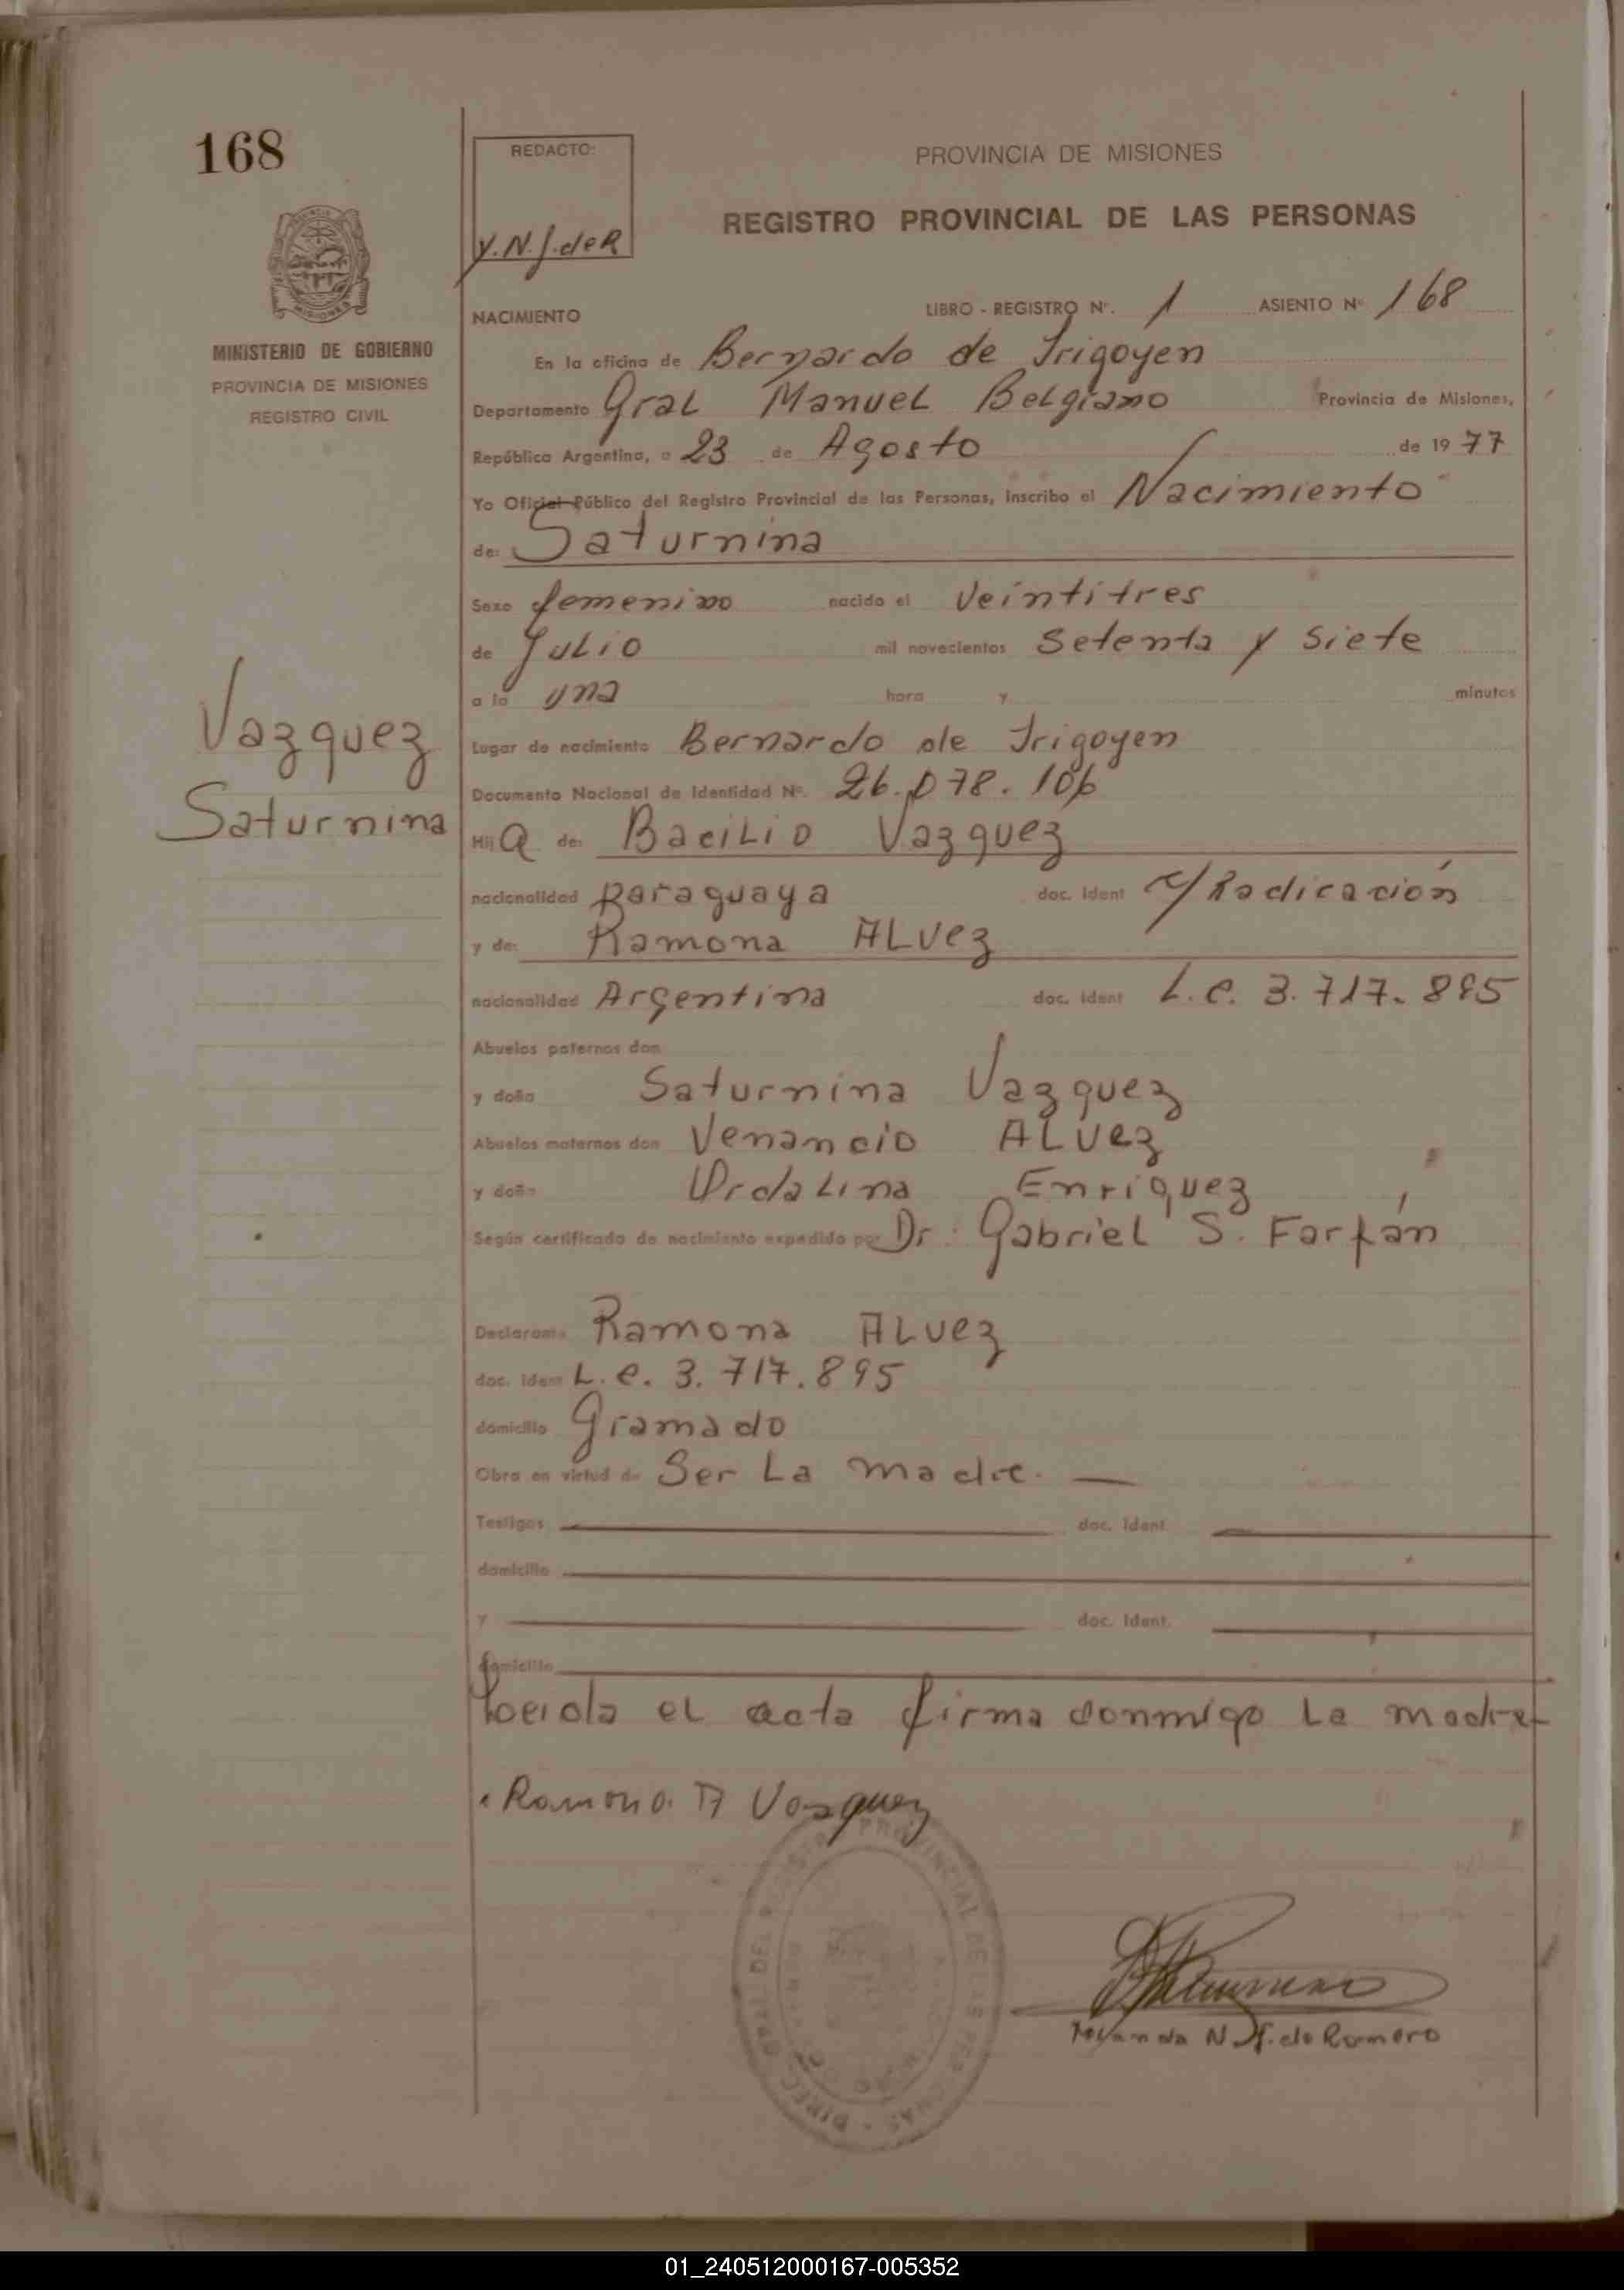 168
REDACTO:
Y.N.J.deR
PROVINCIA DE MISIONES
REGISTRO PROVINCIAL DE LAS PERSONAS
MINISTERIO DE GOBIERNO
PROVINCIA DE MISIONES
REGISTRO CIVIL
NACIMIENTO LIBRO - REGISTRO Nº. 1 ASIENTO Nº 168
En la oficina de Bernardo de Irigoyen
Departamento Gral Manuel Belgrano Provincia de Misiones,
República Argentina, a 23 de Agosto de 1977
Yo Oficial Público del Registro Provincial de las Personas, inscribo el Nacimiento
de: Saturnina
Sexo femenino nacido el Veintitres
de Julio mil novecientos Setenta y Siete
a la una hora y minutos
Vazquez
Saturnina
Lugar de nacimiento Bernardo de Irigoyen
Documento Nacional de Identidad Nº. 26.078.106
Hij a de: Bacilio Vazquez
nacionalidad paraguaya doc. ident c/Radicación
y de: Ramona Alvez
nacionalidad Argentina doc. ident L.C. 3.717.895
Abuelos paternos don
y doña Saturnina Vazquez
Abuelos maternos don Venancio Alvez
y doña Ordalina Enriquez
Según certificado de nacimiento expedido por Dr. Gabriel S. Farfán
Declarante Ramona Alvez
doc. ident L.C. 3.717.895
domicilio Gramado
Obra en virtud de Ser La madre. —
Testigos doc. ident.
domicilio
y doc. ident.
domicilio
Leida el acta firma conmigo La madre
Ramona A Vazquez
DIREC. GRAL DEL REGISTRO PROVINCIAL DE LAS PERSONAS
N. J. de Romero
01_240512000167-005352